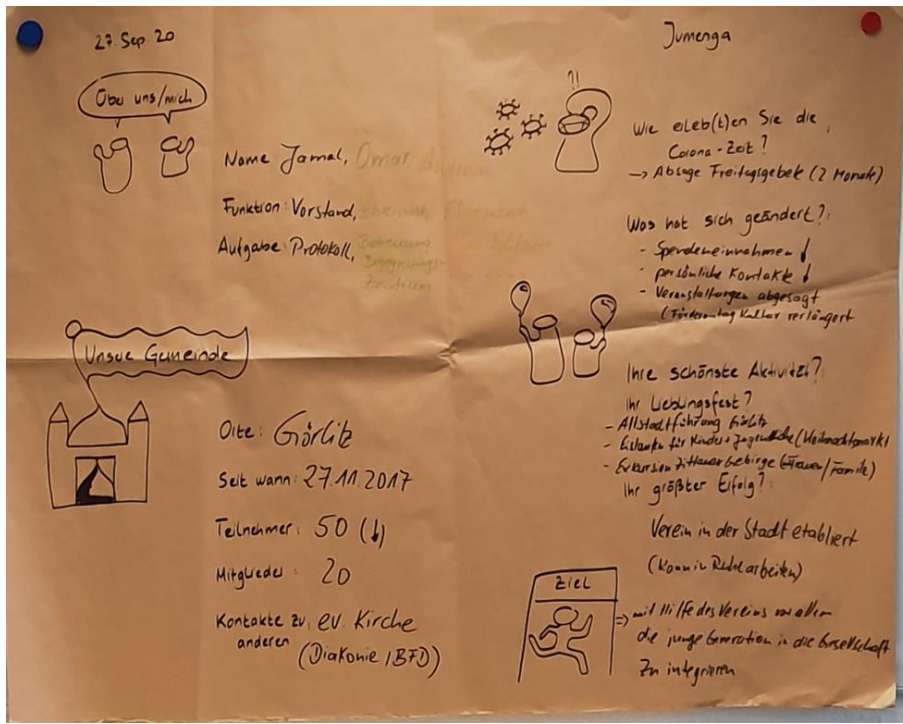 27. Sep. 20
Jumenga
Über uns/mich
Name: Jamal, Omar
Funktion: Vorstand,
Aufgabe: Protokoll, Betreuung
Begegnungs-
zentrum
Unsere Gemeinde
Orte: Görlitz
Seit wann: 27.11.2017
Teilnehmer: 50 (↓)
Mitglieder: 20
Kontakte zu ev. Kirche
anderen (Diakonie / BFD)
?!
Wie erleb(t)en Sie die
Corona-Zeit?
→ Absage Freitagsgebet (2 Monate)
Was hat sich geändert?:
- Spendeneinnahmen ↓
- persönliche Kontakte ↓
- Veranstaltungen abgesagt
(Förderantrag Kultur verlängert
Ihre schönste Aktivität?
Ihr Lieblingsfest?
- Altstadtführung Görlitz
- Eislaufen für Kinder + Jugendliche (Weihnachtsmarkt
- Exkursion Zittauer Gebirge (Frauen/Familie)
Ihr größter Erfolg?:
Verein in der Stadt etabliert
(Kann in Ruhe arbeiten)
Ziel
⇒ mit Hilfe des Vereins vor allem
die junge Generation in die Gesellschaft
zu integrieren